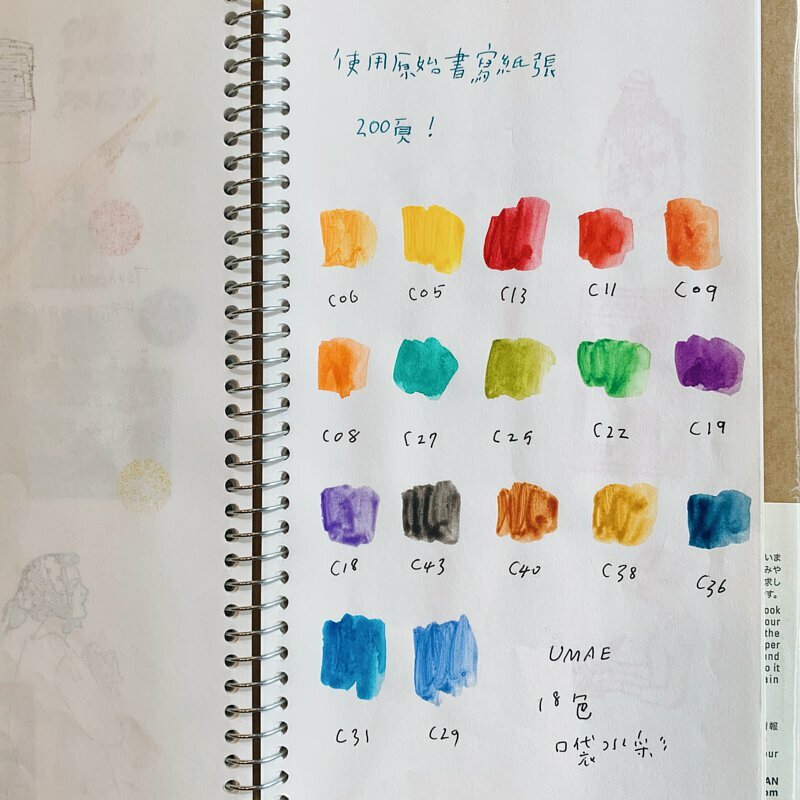 使用原始書寫紙張
200頁！
C06 C05 C13 C11 C09
C08 C27 C25 C22 C19
C18 C43 C40 C38 C36
C31 C29
UMAE
18色
口袋水彩
いま
みや
求し
す。
ook
our
the
per
and
o it
ain
報
our
AN
om